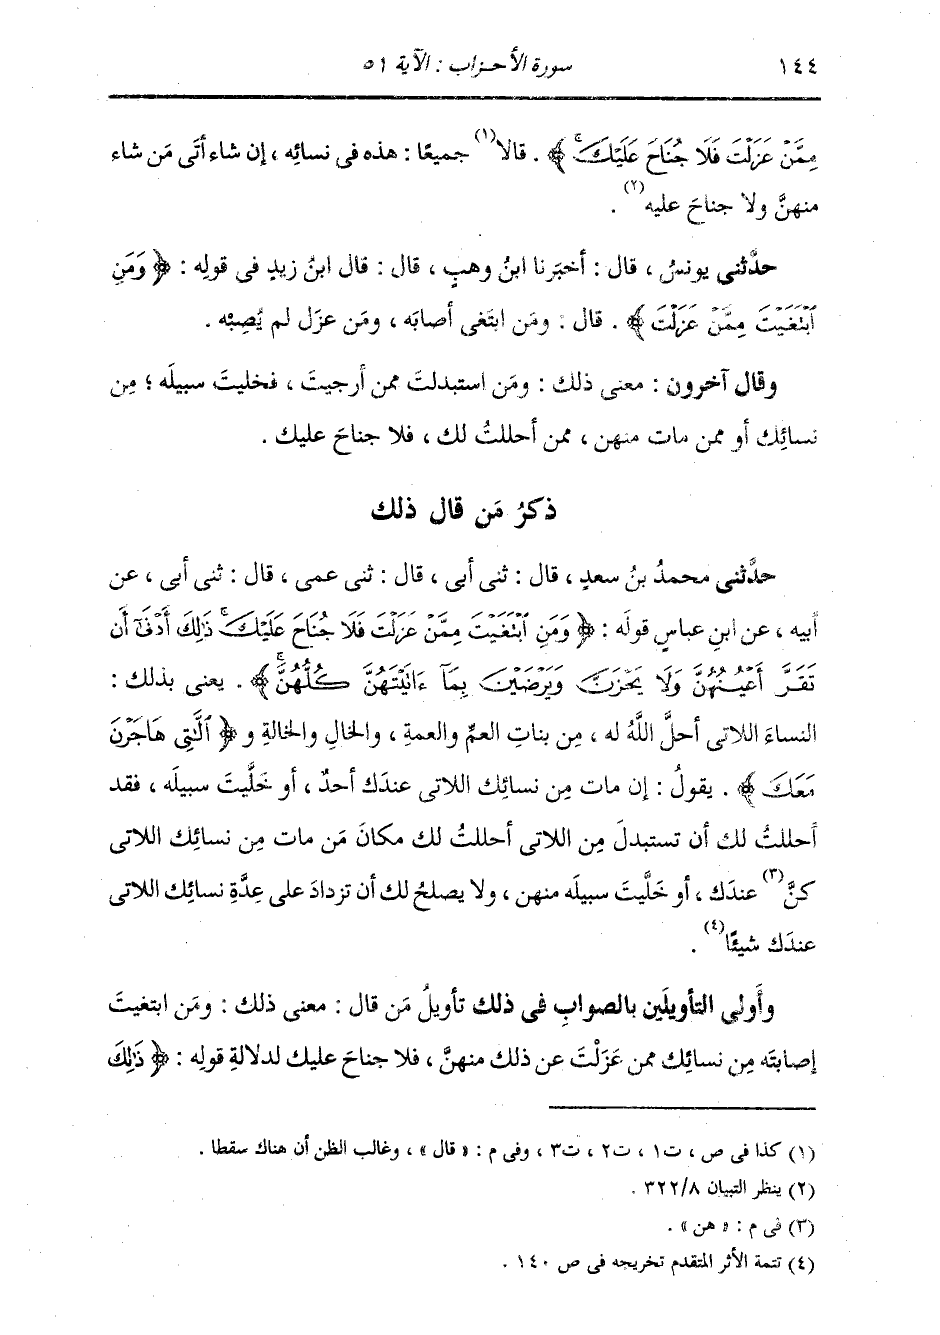 ١٤٤
سورة الأحزاب : الآية ٥١
مِمَّنْ عَزَلْتَ فَلَا جُنَاحَ عَلَيْكَ ﴾ . قالا(١) جميعًا : هذه فى نسائِه ، إن شاء أتَى مَن شاء
منهنَّ ولا جناحَ عليه(٢) .
حدَّثنى يونسُ ، قال : أخبَرنا ابنُ وهبٍ ، قال : قال ابنُ زيدٍ فى قولِه : ﴿ وَمَنِ
ٱبْتَغَيْتَ مِمَّنْ عَزَلْتَ ﴾ . قال : ومَن ابتَغى أصابَه ، ومَن عزَل لم يُصِبْه .
وقال آخرون : معنى ذلك : ومَن استبدلتَ ممن أرجيتَ ، فخليتَ سبيلَه ؛ مِن
نسائِك أو ممن مات منهن ، ممن أحللتُ لك ، فلا جناحَ عليك .
ذكرُ مَن قال ذلك
حدَّثنى محمدُ بنُ سعدٍ ، قال : ثنى أبى ، قال : ثنى عمى ، قال : ثنى أبى ، عن
أبيه ، عن ابنِ عباسٍ قولَه : ﴿ وَمَنِ ٱبْتَغَيْتَ مِمَّنْ عَزَلْتَ فَلَا جُنَاحَ عَلَيْكَ ذَٰلِكَ أَدْنَىٰٓ أَن
تَقَرَّ أَعْيُنُهُنَّ وَلَا يَحْزَنَّ وَيَرْضَيْنَ بِمَآ ءَاتَيْتَهُنَّ كُلُّهُنَّ ﴾ . يعنى بذلك :
النساءَ اللاتى أحلَّ اللَّهُ له ، مِن بناتِ العمِّ والعمةِ ، والخالِ والخالةِ و ﴿ ٱلَّٰتِى هَاجَرْنَ
مَعَكَ ﴾ . يقولُ : إن مات مِن نسائِك اللاتى عندَك أحدٌ ، أو خَلَّيتَ سبيلَه ، فقد
أحللتُ لك أن تستبدلَ مِن اللاتى أحللتُ لك مكانَ مَن مات مِن نسائِك اللاتى
كنَّ(٣) عندَك ، أو خَلَّيتَ سبيلَه منهن ، ولا يصلحُ لك أن تزدادَ على عِدَّةِ نسائِك اللاتى
عندَك شيئًا(٤) .
وأولى التأويلَين بالصوابِ فى ذلك تأويلُ مَن قال : معنى ذلك : ومَن ابتغيتَ
إصابتَه مِن نسائِك ممن عَزَلْتَ عن ذلك منهنَّ ، فلا جناحَ عليك لدلالةِ قولِه : ﴿ ذَٰلِكَ
(١) كذا فى ص ، ت١ ، ت٢ ، ت٣ ، وفى م : « قال » ، وغالب الظن أن هناك سقطا .
(٢) ينظر التبيان ٣٢٢/٨ .
(٣) فى م : « هن » .
(٤) تتمة الأثر المتقدم تخريجه فى ص ١٤٠ .